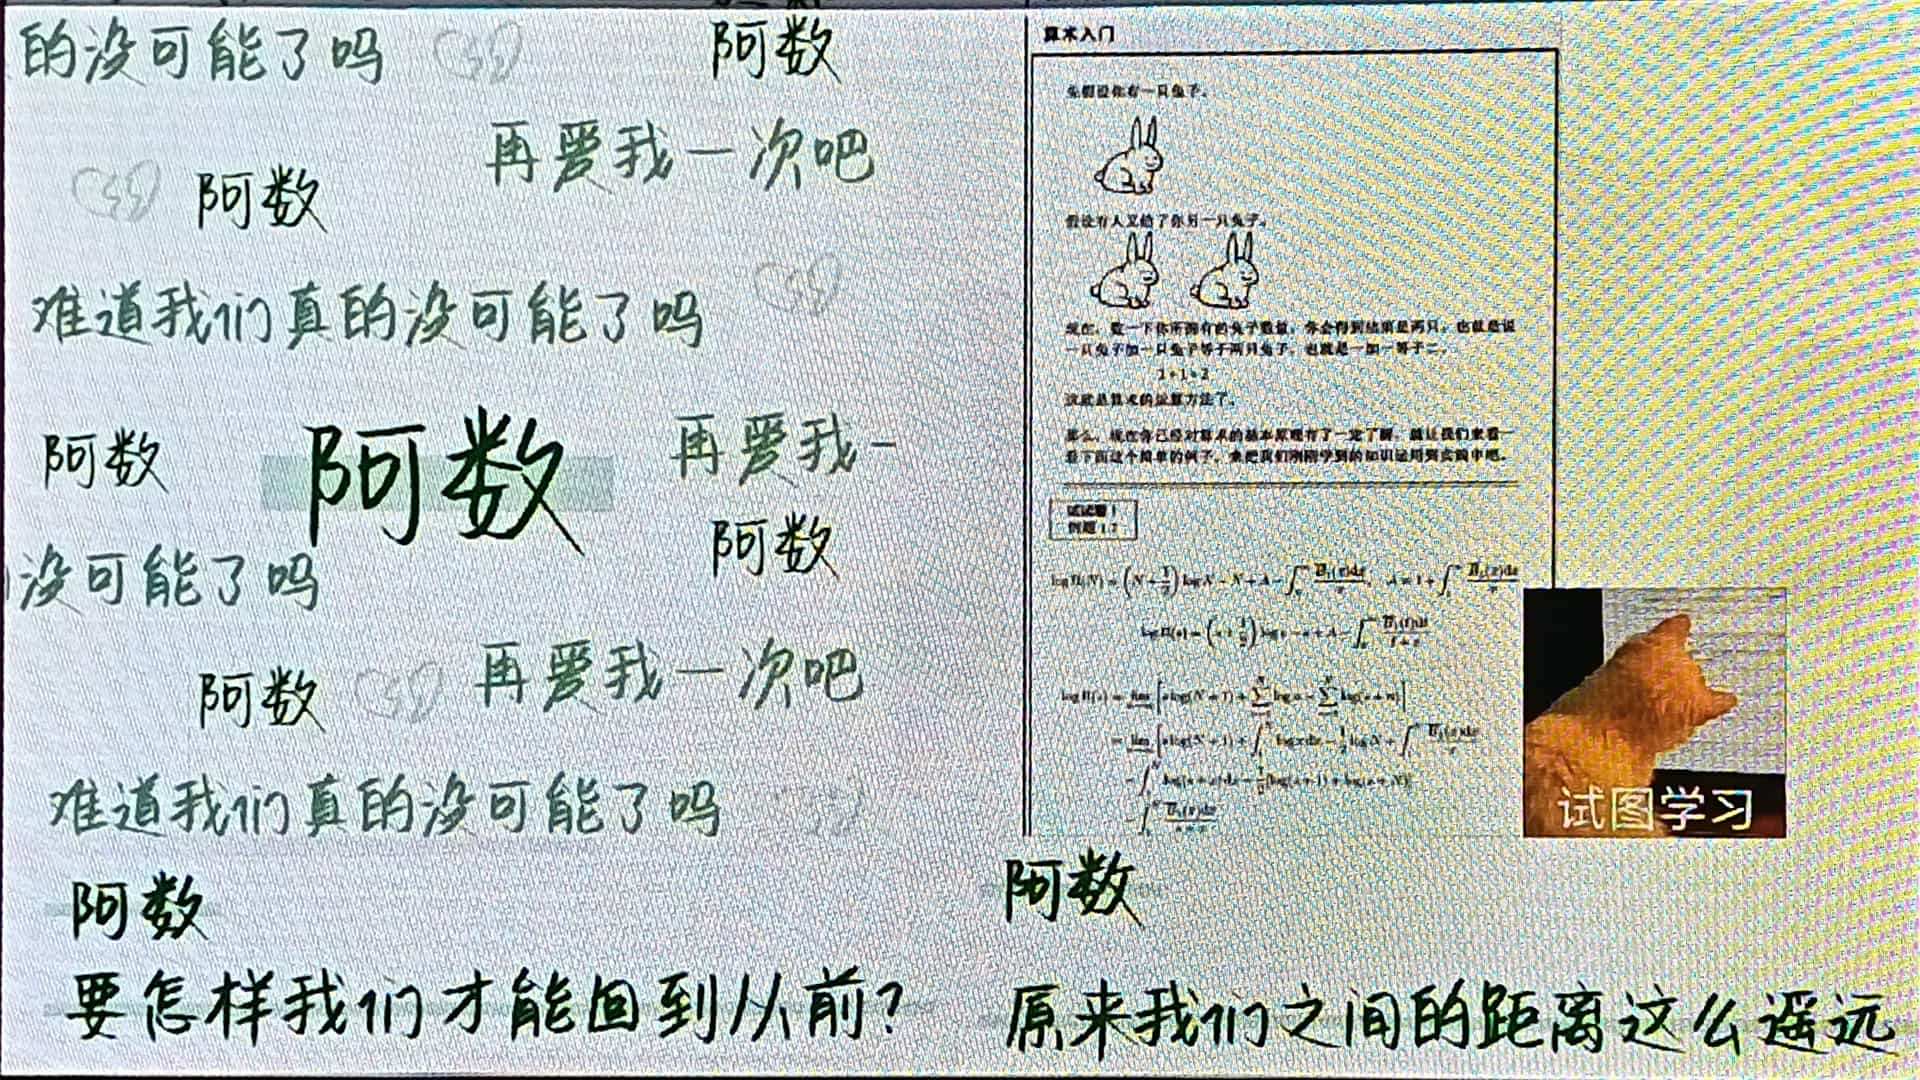 的没可能了吗
阿数
再爱我一次吧
阿数
难道我们真的没可能了吗
阿数
阿数
再爱我一
阿数
没可能了吗
阿数
再爱我一次吧
难道我们真的没可能了吗
阿数
要怎样我们才能回到从前?
算术入门
先假设你有一只兔子。
假设有人又给了你另一只兔子。
现在,数一下你所拥有的兔子数量,你会得到结果是两只。也就是说
一只兔子加一只兔子等于两只兔子,也就是一加一等于二。
1+1=2
这就是算术的运算方法了。
那么,现在你已经对算术的基本原理有了一定了解,就让我们来看一
看下面这个简单的例子,来把我们刚刚学到的知识运用到实践中吧。
试试看!
例题 1.7
试图学习
阿数
原来我们之间的距离这么遥远